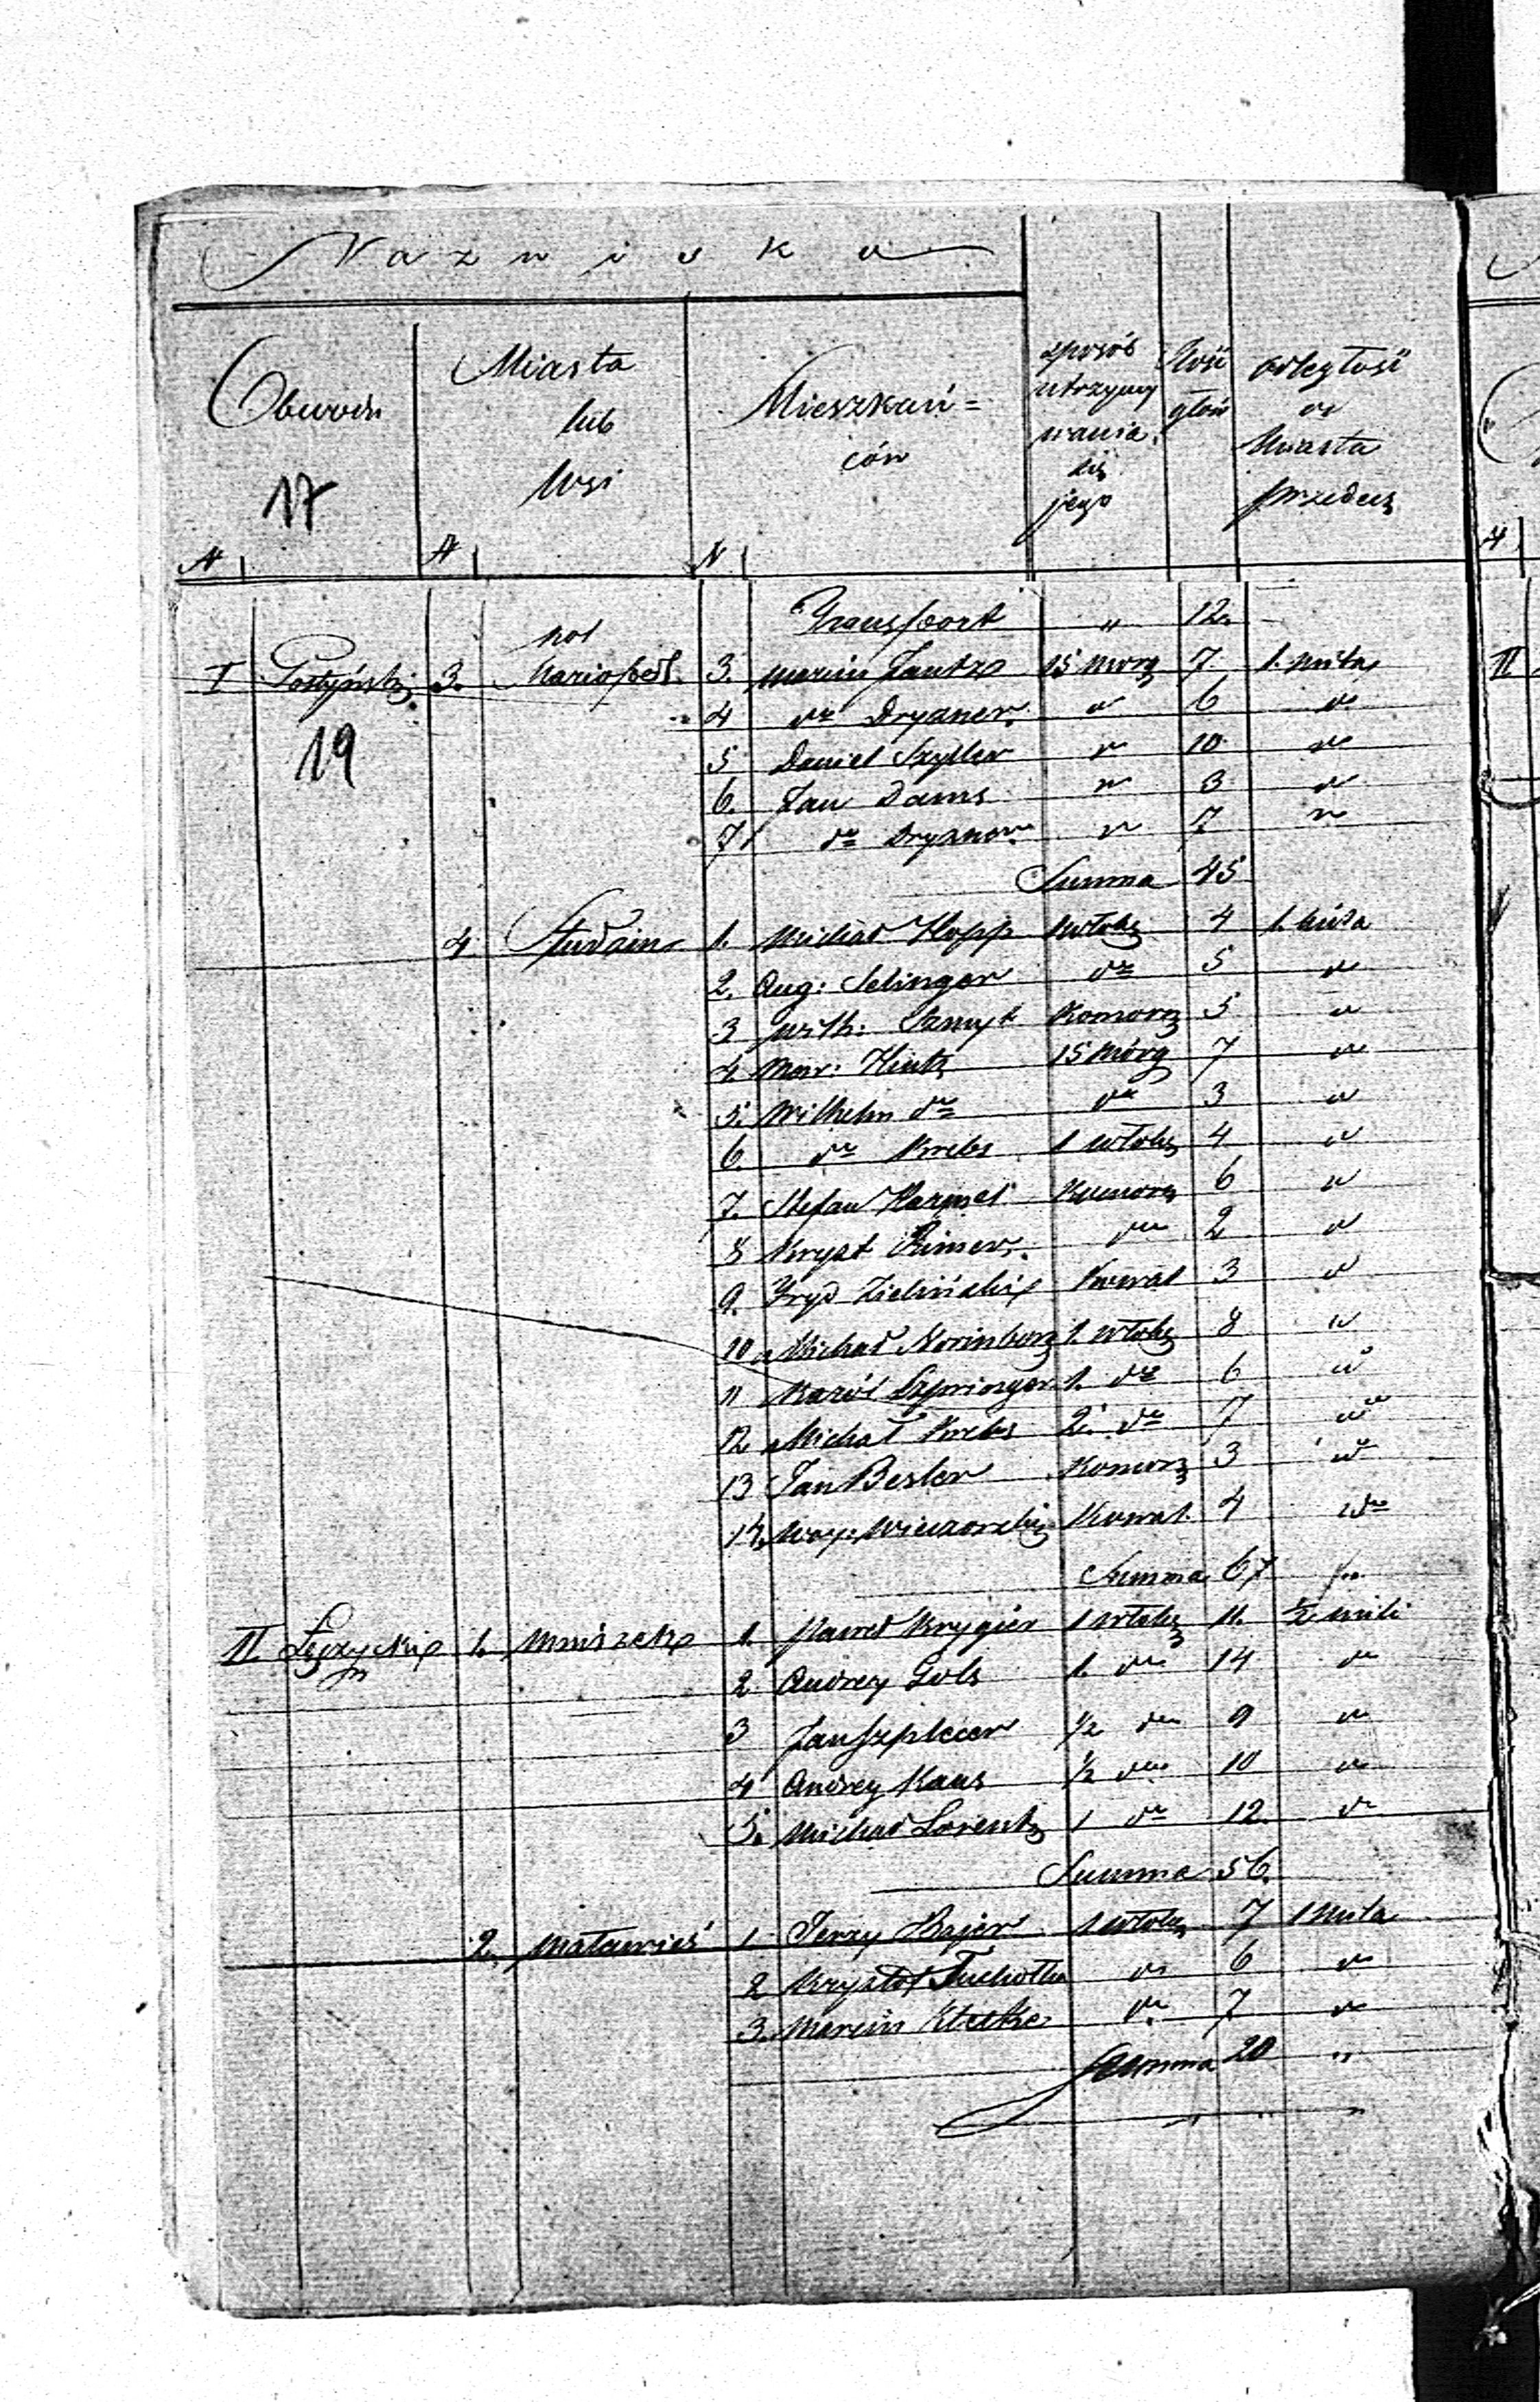 Nazwiska
Obwodu
17
Miasta
lub
Wsi
Mieszkań=
ców
sposób
utrzymy
wania
się
jego
Ilość
głów
odległość
od
Miasta
przedecz
N N N
Transport " 12.
I Gostyński 3. kol Mariopol 3. Marcin Jantz 15 morg 7 1. mila
19
4 do Dryzner do 6 do
5 Daniel Szyller do 10 do
6. Jan Dams do 3 do
7 do Dryzner do 7 do
Summa 45
4. 1. Michał Klopp 1 włoki 4 1. mila
2. Aug: Selinger do 5 do
3 Wilh: Szmyt Komorn 5 do
4. Mar: Hintz 15 Mórg 7 do
5. Wilhelm do do 3 do
6. do Krebs 1 włoki 4 do
7. Stefan Komorn 6 do
8 Kryst Rimer. do 2 do
9. Fryd Zieliński Kowal 3 do
10 Michał Norinberg 1. włoki 8 do
11 Karól Szpringer 1. do 6 do
12 Michał Krebs 2. do 7 do
13 Jan Besler Komorn 3 do
14. Woy: Wieczorek Kowal. 4 do
Summa 67
II Łęczycki 1. Mniszek 1. Paweł Krygier 1 włoki 11. ½ mili
2 Andrzey Gols 1. do 14 do
3 Jan ½ do 9 do
4 Andrzey Kaus ½ do 10 do
5. Michał Lorentz 1 do 12. do
Summa 56.
2. Maławieś 1 Jerzy Bajer 1 włoki 7 1 mila
2 Krysztof Tuchołka do 6 do
3. Marcin Kletke do 7 do
Summa 20 "